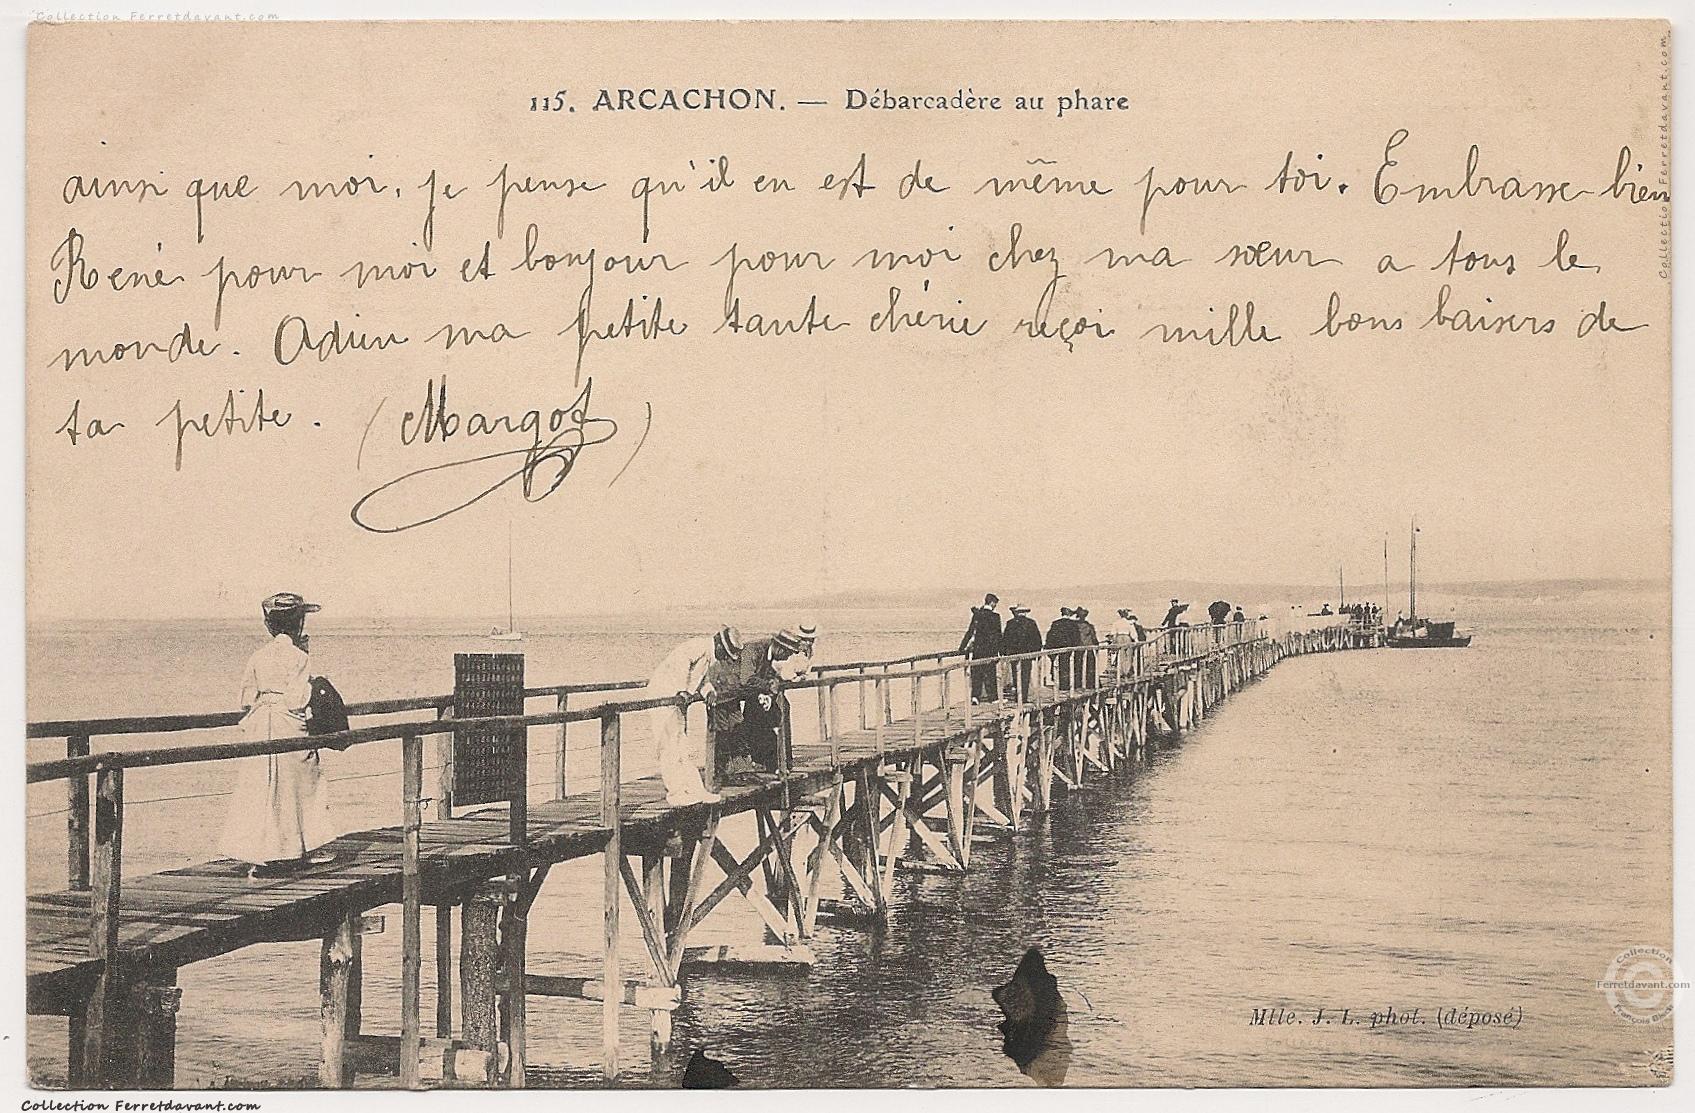 Collection Ferretdavant.com
Collection Ferretdavant.com
115. ARCACHON. — Débarcadère au phare
ainsi que moi, je pense qu'il en est de même pour toi. Embrasse bien
René pour moi et bonjour pour moi chez ma sœur a tous le
monde. Adieu ma petite tante chérie reçoi mille bons baisers de
ta petite. (Margot)
Collection
Ferretdavant.com
Mlle. J. L. phot. (déposé)
Collection Ferretdavant.com